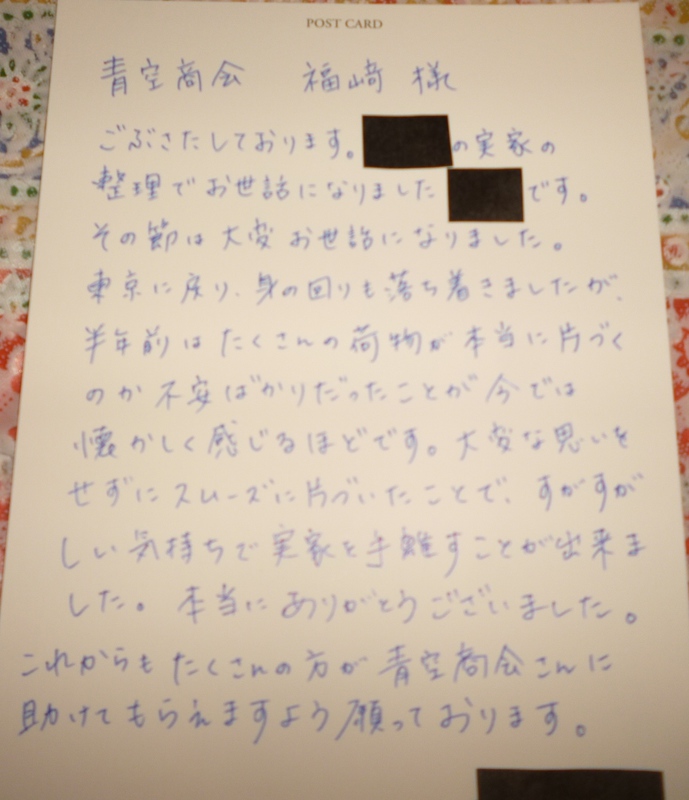 POST CARD
青空商会 福崎 様
ごぶさたしております。の実家の
整理でお世話になりましたです。
その節は大変お世話になりました。
東京に戻り、身の回りも落ち着きましたが、
半年前はたくさんの荷物が本当に片づく
のか不安ばかりだったことが今では
懐かしく感じるほどです。大変な思いを
せずにスムーズに片づいたことで、すがすが
しい気持ちで実家を手離すことが出来ま
した。本当にありがとうございました。
これからもたくさんの方が青空商会さんに
助けてもらえますよう願っております。